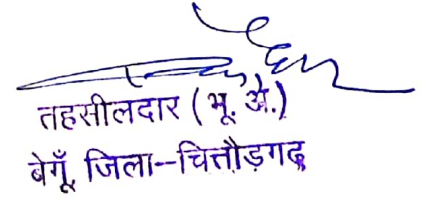 तहसीलदार (भू. अ.)
बेगूँ, जिला–चित्तौड़गढ़